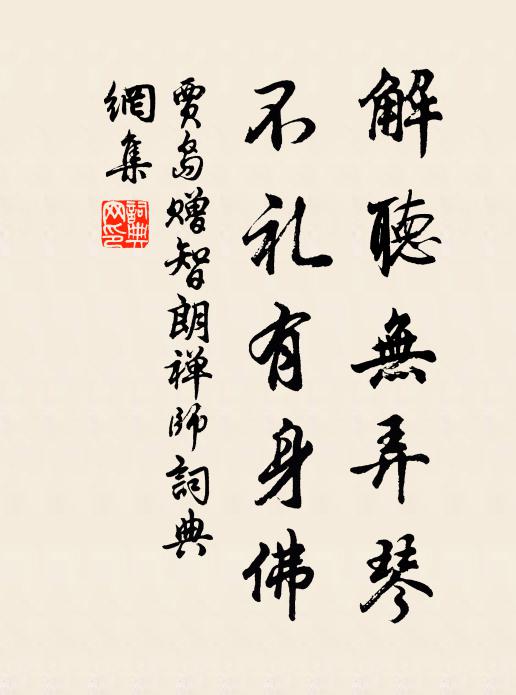 解聽無弄琴
不礼有身佛
賈島贈智朗禅師詞典
網集
詞典網印